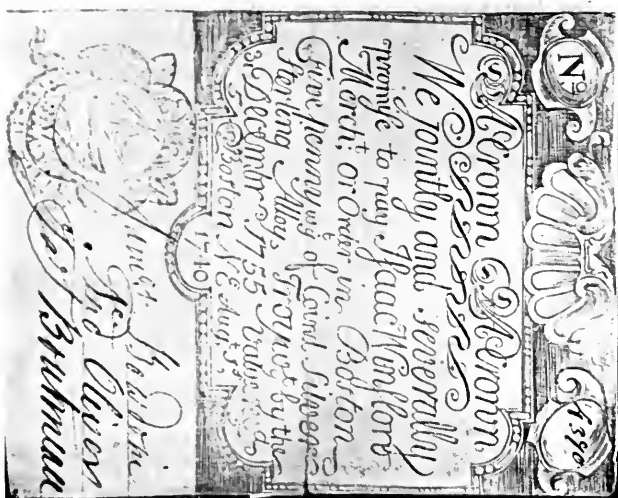 Nº 4390
A Crown A Crown
We jointly and severally
promise to pay Isaac Winslow
Mercht. or Order in Boston
Five penny wt. of Coind Silver
Sterling Alloy Troy wt. by the
31 Decembr. 1755 Value
Boston N.E. Augt.
1740
James Bowdoin
And Oliver
Jas Boutineau